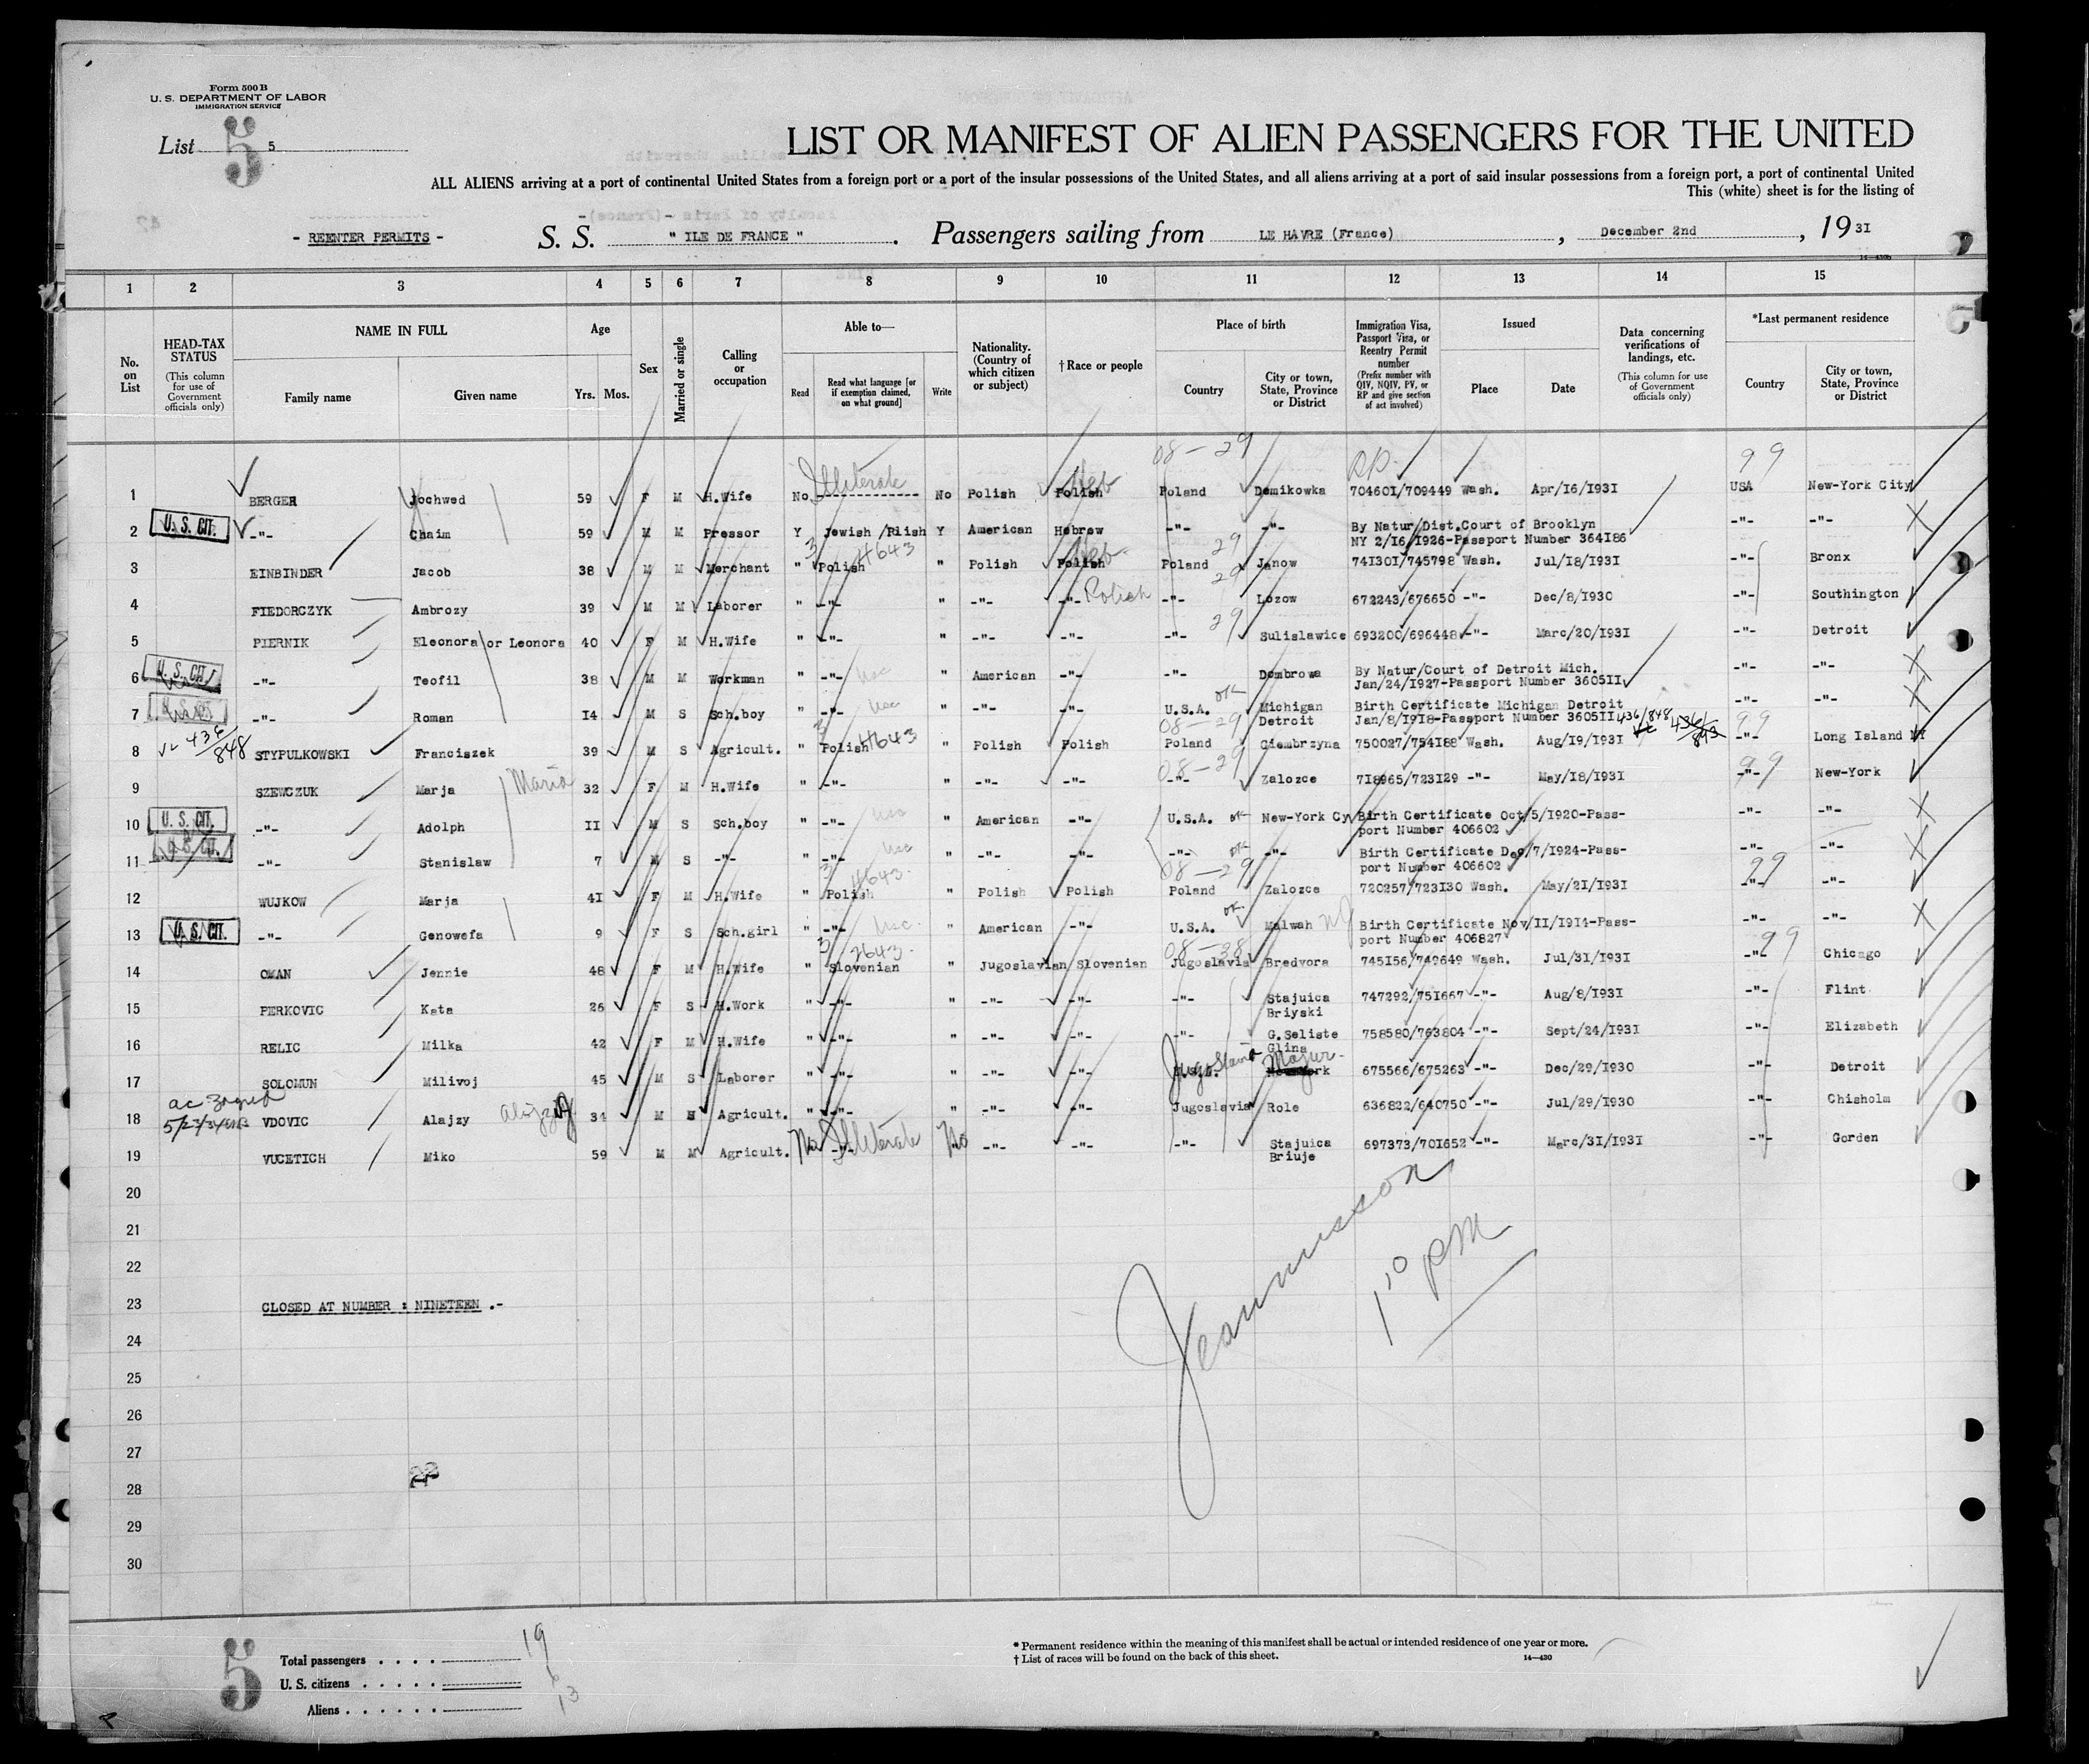 Form 500 B
U. S. DEPARTMENT OF LABOR
IMMIGRATION SERVICE
List 5 5
LIST OR MANIFEST OF ALIEN PASSENGERS FOR THE UNITED
ALL ALIENS arriving at a port of continental United States from a foreign port or a port of the insular possessions of the United States, and all aliens arriving at a port of said insular possessions from a foreign port, a port of continental United
This (white) sheet is for the listing of
- REENTER PERMITS - S. S. " ILE DE FRANCE " . Passengers sailing from LE HAVRE (France) , December 2nd , 1931
1 2 3 4 5 6 7 8 9 10 11 12 13 14 15
No. on List
HEAD-TAX STATUS (This column for use of Government officials only)
NAME IN FULL Family name Given name
Age Yrs. Mos.
Sex
Married or single
Calling or occupation
Able to— Read Read what language [or if exemption claimed, on what ground] Write
Nationality. (Country of which citizen or subject)
† Race or people
Place of birth Country City or town, State, Province or District
Immigration Visa, Passport Visa, or Reentry Permit number (Prefix number with QIV, NQIV, PV, or RP and give section of act involved)
Issued Place Date
Data concerning verifications of landings, etc. (This column for use of Government officials only)
*Last permanent residence Country City or town, State, Province or District
08-29 RP 99
1 BERGER Jochwed 59 F M H.Wife No Illiterate No Polish Polish Heb Poland Demikowka 704601/709449 Wash. Apr/16/1931 USA New-York City
2 U. S. CIT. -"- Chaim 59 M M Pressor Y Jewish /Plish Y American Hebrew -"- -"- By Natur/Dist.Court of Brooklyn NY 2/16/1926-Passport Number 364186 -"- -"-
3 EINBINDER Jacob 38 M M Merchant " Polish 3 4643 " Polish Polish Heb Poland 29 Janow 741301/745798 Wash. Jul/18/1931 -"- Bronx
4 FIEDORCZYK Ambrozy 39 M M Laborer " -"- " -"- -"- Polish -"- 29 Lozow 672243/676650 -"- Dec/8/1930 -"- Southington
5 PIERNIK Eleonora or Leonora 40 F M H.Wife " -"- " -"- -"- -"- 29 Sulislawice 693200/696448 -"- Marc/20/1931 -"- Detroit
6 U. S. CIT. -"- Teofil 38 M M Workman " -"- usc " American -"- -"- Dombrowa By Natur/Court of Detroit Mich. Jan/24/1927-Passport Number 360511 -"- -"-
7 -"- Roman 14 M S Sch.boy " -"- usc " -"- -"- U.S.A. ok Michigan Detroit Birth Certificate Michigan Detroit Jan/8/1918-Passport Number 360511 -"- -"-
8 436/848 STYPULKOWSKI Franciszek 39 M S Agricult. " Polish 3 4643 " Polish Polish Poland 08-29 Ciembrzyna 750027/754188 Wash. Aug/19/1931 436/848 436/843 99 -"- Long Island NY
9 SZEWCZUK Marja Maria 32 F M H.Wife " -"- " -"- -"- -"- 08-29 Zalozce 718965/723129 -"- May/18/1931 99 -"- New-York
10 U. S. CIT. -"- Adolph 11 M S Sch.boy " -"- usc " American -"- U.S.A. ok New-York Cy Birth Certificate Oct/5/1920-Passport Number 406602 -"- -"-
11 U. S. CIT. -"- Stanislaw 7 M S -"- " -"- usc " -"- -"- -"- ok -"- Birth Certificate Dec/7/1924-Passport Number 406602 -"- -"-
12 WUJKOW Marja 41 F M H.Wife " Polish 3 4643 " Polish Polish Poland 08-29 Zalozce 720257/723130 Wash. May/21/1931 99 -"- -"-
13 U. S. CIT. -"- Genowefa 9 F S Sch.girl " -"- usc " American -"- U.S.A. ok Malwah NJ Birth Certificate Nov/11/1914-Passport Number 406827 -"- -"-
14 OMAN Jennie 48 F M H.Wife " Slovenian 3 2643 " Jugoslavian Slovenian Jugoslavia 08-38 Bredvora 745156/749649 Wash. Jul/31/1931 99 -"- Chicago
15 PERKOVIC Kata 26 F S H.Work " -"- " -"- -"- -"- Stajuica Briyski 747292/751667 -"- Aug/8/1931 -"- Flint
16 RELIC Milka 42 F M H.Wife " -"- " -"- -"- -"- G.Seliste Glina 758580/763804 -"- Sept/24/1931 -"- Elizabeth
17 SOLOMUN Milivoj 45 M S Laborer " -"- " -"- -"- Jugoslavia Majur 675566/675263 -"- Dec/29/1930 -"- Detroit
18 VDOVIC Alajzy 34 M Agricult. " -"- " -"- -"- Jugoslavia Role 636822/640750 -"- Jul/29/1930 -"- Chisholm
19 VUCETICH Miko 59 M M Agricult. No -"- Illiterate No -"- -"- -"- Stajuica Briuje 697373/701652 -"- Marc/31/1931 -"- Gorden
20
21
22
23 CLOSED AT NUMBER : NINETEEN .-
24
25
26
27
28
29
30
1¹⁰ PM
5
Total passengers . . . . 19
U. S. citizens . . . . . 6
Aliens . . . . . . 13
* Permanent residence within the meaning of this manifest shall be actual or intended residence of one year or more.
† List of races will be found on the back of this sheet. 14—430